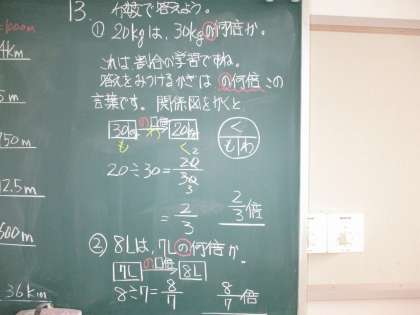 13. 分数で答えよう。
① 20kgは、30kgの何倍か。
これは割合の学習ですね。
答えをみつけるかぎは の何倍 この
言葉です。関係図をかくと
の□倍
30kg → 20kg
も わ く
く
も わ
20÷30=20/30
2
3
=2/3
2/3倍
② 8Lは、7Lの何倍か。
の□倍
7L → 8L
8÷7=8/7
8/7倍
=1000m
4km
5m
50m
12.5m
600m
36km